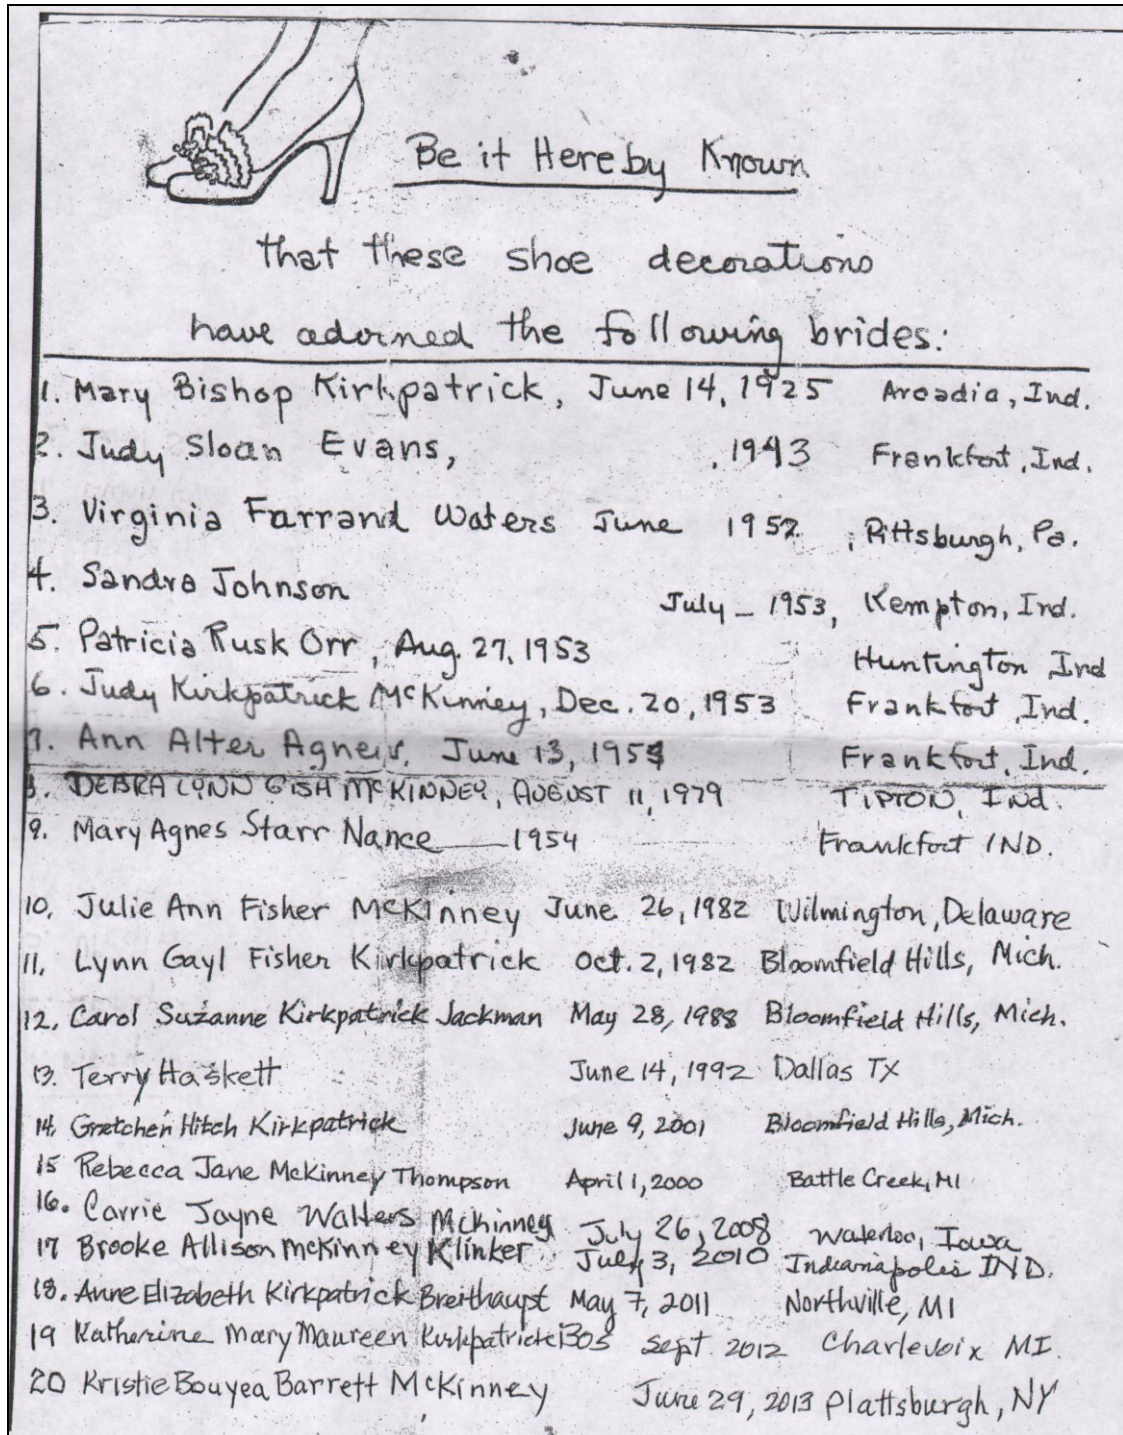 Be it Hereby Known
that these shoe decorations
have adorned the following brides:
1. Mary Bishop Kirkpatrick, June 14, 1925 Arcadia, Ind.
2. Judy Sloan Evans, , 1943 Frankfort, Ind.
3. Virginia Farrand Waters June 1952, Pittsburgh, Pa.
4. Sandra Johnson July - 1953, Kempton, Ind.
5. Patricia Rusk Orr, Aug. 27, 1953 Huntington Ind
6. Judy Kirkpatrick McKinney, Dec. 20, 1953 Frankfort, Ind.
7. Ann Alter Agnew, June 13, Frankfort, Ind.
8. DEBRA LYNN GISH McKINNEY, AUGUST 11, 1979 TIPTON, Ind.
9. Mary Agnes Starr Nance — 1954 Frankfort IND.
10. Julie Ann Fisher McKinney June 26, 1982 Wilmington, Delaware
11. Lynn Gayl Fisher Kirkpatrick Oct. 2, 1982 Bloomfield Hills, Mich.
12. Carol Suzanne Kirkpatrick Jackman May 28, 1988 Bloomfield Hills, Mich.
13. Terry Haskett June 14, 1992 Dallas TX
14. Gretchen Hitch Kirkpatrick June 9, 2001 Bloomfield Hills, Mich.
15 Rebecca Jane McKinney Thompson April 1, 2000 Battle Creek, MI
16. Carrie Jayne Walters McKinney July 26, 2008 Waterloo, Iowa
17 Brooke Allison McKinney Klinker July 3, 2010 Indianapolis IND.
18. Anne Elizabeth Kirkpatrick Breithaupt May 7, 2011 Northville, MI
19 Katherine Mary Maureen Kirkpatrick Bos Sept. 2012 Charlevoix MI.
20 Kristie Bouyea Barrett McKinney June 29, 2013 Plattsburgh, NY